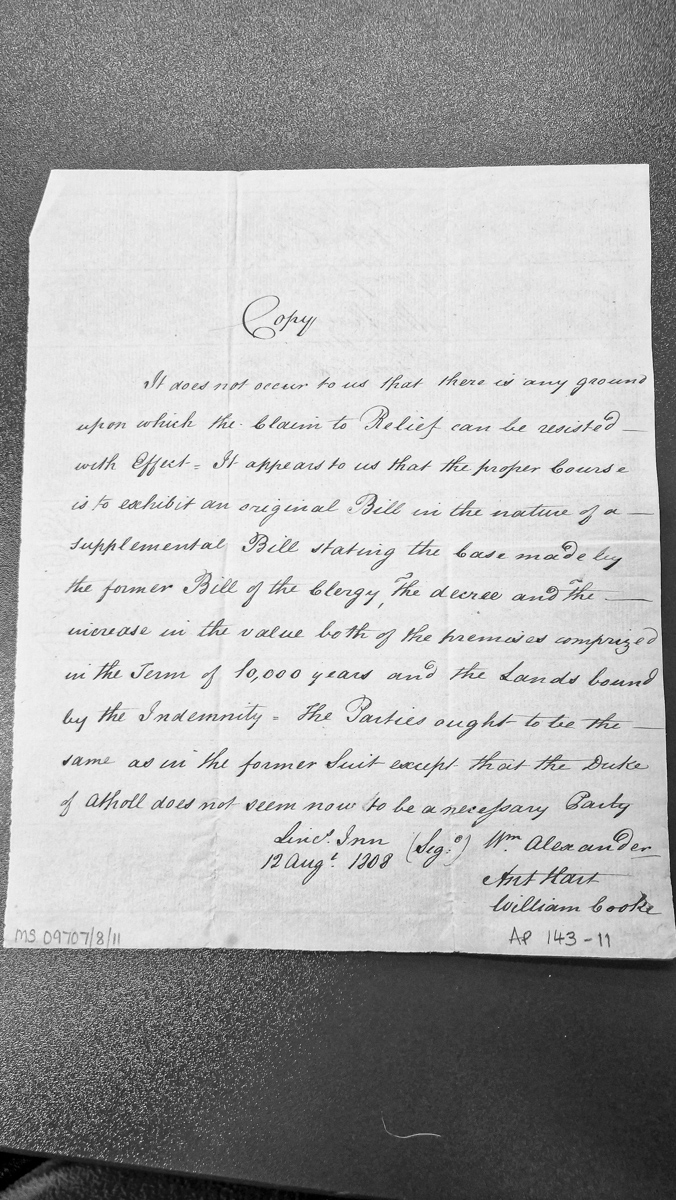 Copy
It does not occur to us that there is any ground
upon which the Claim to Relief can be resisted —
with Effect = It appears to us that the proper Course
is to exhibit an original Bill in the nature of a —
Supplemental Bill stating the Case made by
the former Bill of the Clergy, The decree and The —
increase in the value both of the premises comprized
in the Term of 10,000 years and the Lands bound
by the Indemnity = The Parties ought to be the —
same as in the former Suit except that the Duke
of Atholl does not seem now to be a necessary Party
Linc.s Inn (Sig:d) Wm Alexander
12 Augt. 1808
Ant Hart
William Cooke
MS 09707/8/11
AP 143-11